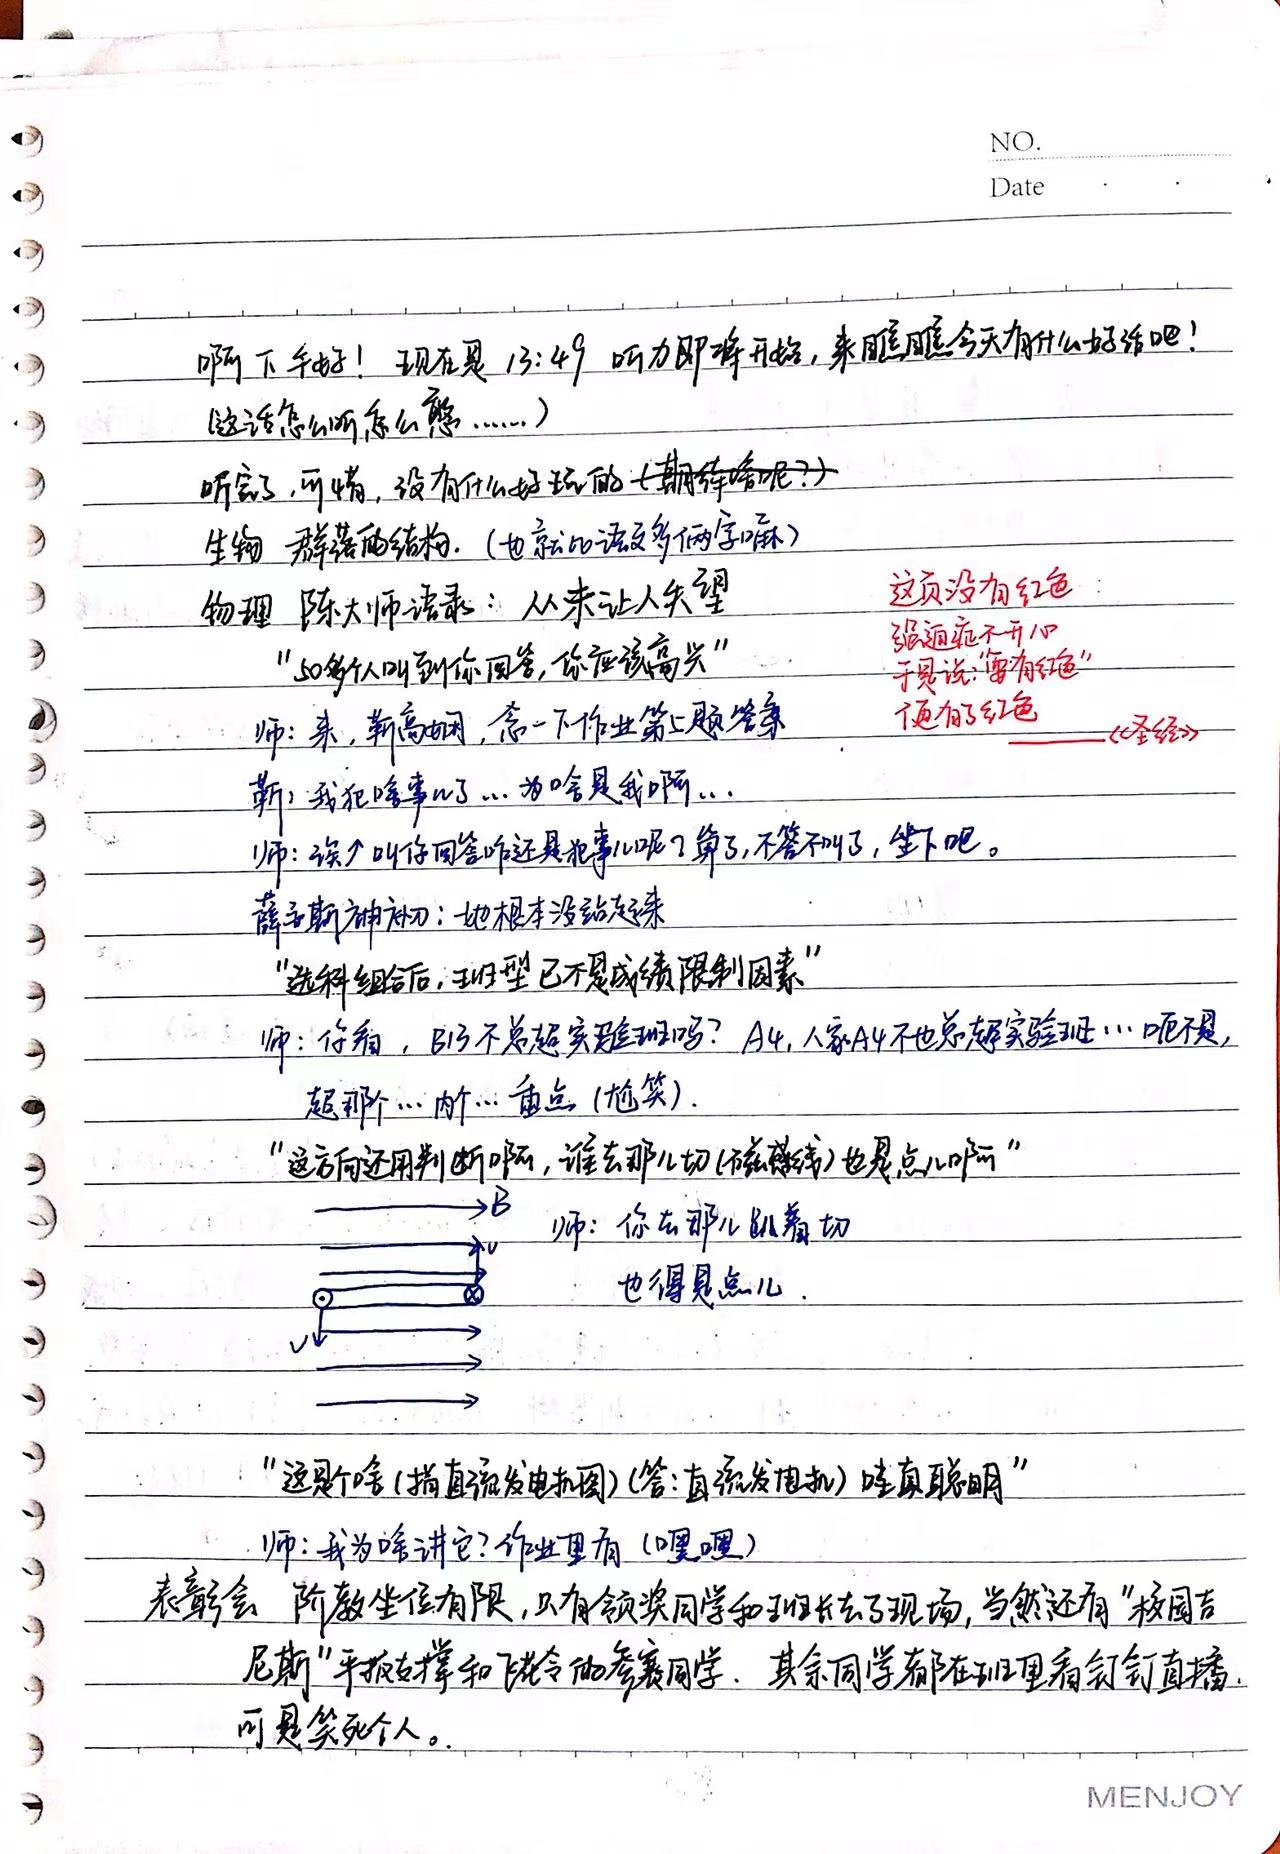 NO.
Date
啊下午好！ 现在是 13:49 听力即将开始，来瞧瞧今天有什么好活吧！
（这话怎么听怎么憨……）
听完了，可惜，没有什么好玩的（期待啥呢？）
生物 群落的结构．（也就比语文多俩字嘛）
物理 陈大师语录：从未让人失望
"50多个人叫到你回答，你应该高兴"
这页没有红色
强迫症不开心
于是说："要有红色"
便有了红色
——《圣经》
师：来，靳高娴，念一下作业第上题答案
靳：我犯啥事儿了…为啥是我啊…
师：诶↗叫你回答咋还是犯事儿呢？算了，不答不叫了，坐下吧。
薛斯神补刀：她根本没站起来
"选科组合后，班型已不是成绩限制因素"
师：你看，B13不总超实验班吗？ A4，人家A4不也总超实验班…呃不是，
超那个…内个…重点（尬笑）．
"这方向还用判断啊，谁去那儿切（磁感线）也是点儿啊"
B
v
v
师：你去那儿趴着切
也得是点儿．
"这是个啥（指直流发电机图）（答：直流发电机）哇真聪明"
师：我为啥讲它？作业里有（嘿嘿）
表彰会 阶教坐位有限，只有领奖同学和班长去了现场，当然还有"校园吉
尼斯"平板支撑和飞花令的参赛同学． 其余同学都在班里看钉钉直播．
可是笑死个人。
MENJOY